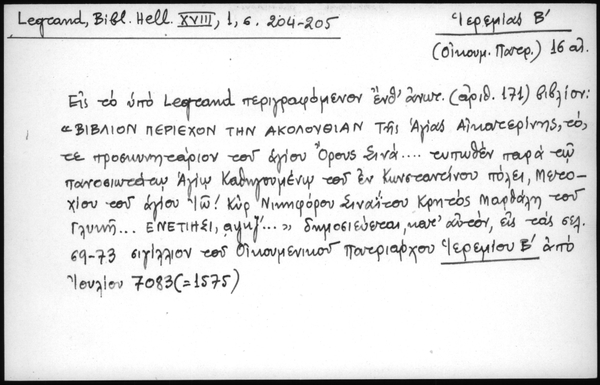 Legrand, Bibl. Hell. XVIII, 1, σ. 204-205
Ἱερεμίας Β΄
(Οἰκουμ. Πατρ.) 16 αἰ.
Εἰς τὸ ὑπὸ Legrand περιγραφόμενον ἔνθ' ἀνωτ. (ἀριθ. 171) βιβλίον:
«ΒΙΒΛΙΟΝ ΠΕΡΙΕΧΟΝ ΤΗΝ ΑΚΟΛΟΥΘΙΑΝ τῆς Ἁγίας Αἰκατερίνης, τό,
τε προσκυνητάριον τοῦ ἁγίου Ὄρους Σινᾶ.... τυπωθὲν παρὰ τῷ
πανοσιωτάτῳ Ἁγίῳ Καθηγουμένῳ τοῦ ἐν Κωνσταντίνου πόλει, Μετο-
χίου τοῦ ἁγίου Ἰω! Κὺρ Νικηφόρου Σιναΐτου Κρητὸς Μαρθάλη τοῦ
Γλυκῆ... ΕΝΕΤΙΗΣΙ, αψκζ΄...» δημοσιεύεται, κατ' αὐτόν, εἰς τὰς σελ.
69-73 σιγίλλιον τοῦ Οἰκουμενικοῦ Πατριάρχου Ἱερεμίου Β΄ ἀπὸ
Ἰουλίου 7083 (=1575)